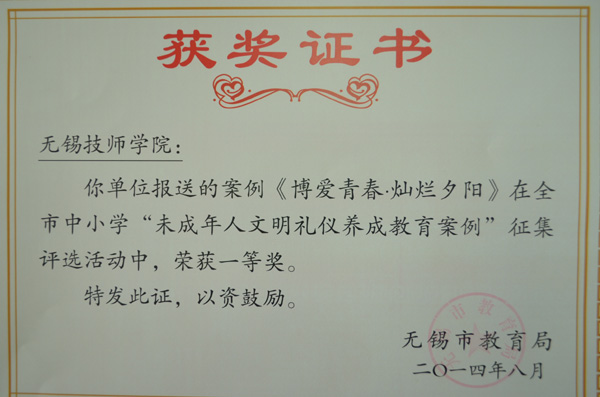 获奖证书
无锡技师学院：
你单位报送的案例《博爱青春·灿烂夕阳》在全
市中小学“未成年人文明礼仪养成教育案例”征集
评选活动中，荣获一等奖。
特发此证，以资鼓励。
无锡市教育局
二〇一四年八月
无锡市教育局